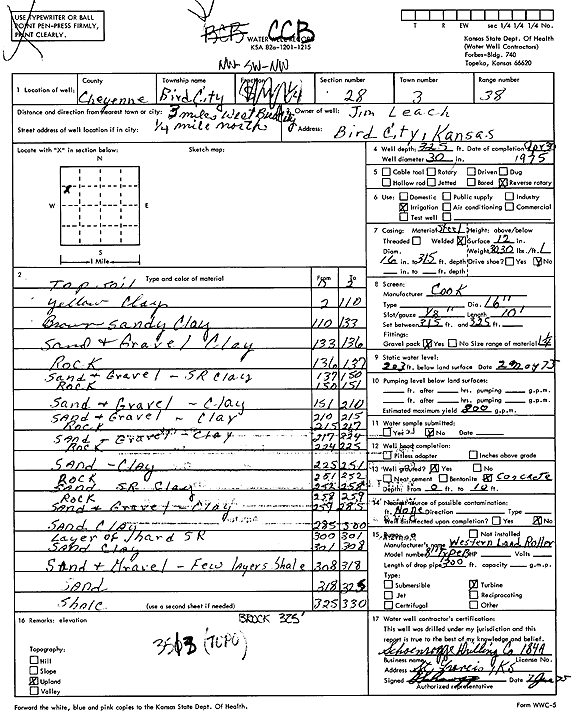 USE TYPEWRITER OR BALL
POINT PEN-PRESS FIRMLY,
PRINT CLEARLY.
BCB CCB
WATER WELL RECORD
KSA 82a-1201-1215
T R EW sec 1/4 1/4 1/4 No.
Kansas State Dept. Of Health
(Water Well Contractors)
Forbes-Bldg. 740
Topeka, Kansas 66620
NW-SW-NW
1 Location of well:
County
Cheyenne
Township name
Bird City
Fraction
Section number
28
Town number
3
Range number
38
Distance and direction from nearest town or city: 3 miles West Bird City
Street address of well location if in city: 1/4 mile north
2 Owner of well: Jim Leach
Address: Bird City, Kansas
Locate with "X" in section below: Sketch map:
N
W E
S
1 Mile
X
4 Well depth: 325 ft. Date of completion Apr 3
Well diameter 30 in. 1975
5 Cable tool Rotary Driven Dug
Hollow rod Jetted Bored X Reverse rotary
6 Use: Domestic Public supply Industry
X Irrigation Air conditioning Commercial
Test well
7 Casing: Material Steel Height: above/below
Threaded Welded X Surface 12 in.
Diam. Weight 3030 lbs./ft.
16 in. to 315 ft. depth Drive shoe? Yes X No
in. to ft. depth
8 Screen:
Manufacturer Cook
Type Dia. 16"
Slot/gauze 1/8" Length 10'
Set between 315 ft. and 325 ft.
Fittings:
Gravel pack X Yes No Size range of material 1/4
9 Static water level:
203 ft. below land surface Date 2 May 75
10 Pumping level below land surfaces:
ft. after hrs. pumping g.p.m.
ft. after hrs. pumping g.p.m.
Estimated maximum yield 800 g.p.m.
11 Water sample submitted:
Yes X No Date
12 Well head completion:
Pitless adapter Inches above grade
13 Well grouted? X Yes No
Neat cement Bentonite X Concrete
Depth: From 0 ft. to 10 ft.
14 Nearest source of possible contamination:
ft. None Direction Type
Well disinfected upon completion? Yes X No
15 Pump: Not installed
Manufacturer's name Western Land Roller
Model number HP Volts
Length of drop pipe 300 ft. capacity g.p.m.
Type:
Submersible X Turbine
Jet Reciprocating
Certifugal Other
2 Type and color of material From To
Top soil 0 2
Yellow Clay 2 110
Brown Sandy Clay 110 133
Sand & Gravel Clay 133 136
Rock 136 137
Sand & Gravel - SR Clay 137 150
Rock 150 151
Sand & Gravel - Clay 151 210
Sand & Gravel - Clay 210 215
Rock 215 217
Sand & Gravel - Clay 217 224
Rock 224 225
Sand - Clay 225 251
Rock 251 252
Sand SR Clay 252 258
Rock 258 259
Sand & Gravel - Clay 259 285
Sand Clay 285 300
Layer of Hard SR 300 301
Sand Clay 301 308
Sand & Gravel - Few Layers Shale 308 318
Sand 318 325
Shale 325 330
(use a second sheet if needed)
16 Remarks: elevation
BROCK 325'
3513 (TOPO)
Topography:
Hill
Slope
X Upland
Valley
17 Water well contractor's certification:
This well was drilled under my jurisdiction and this
report is true to the best of my knowledge and belief.
Schoenrogge Drilling Co 184A
Business name License No.
Address St. Francis, KS
Signed Date 2 June 75
Authorized representative
Forward the white, blue and pink copies to the Kansas State Dept. Of Health.
Form WWC-5